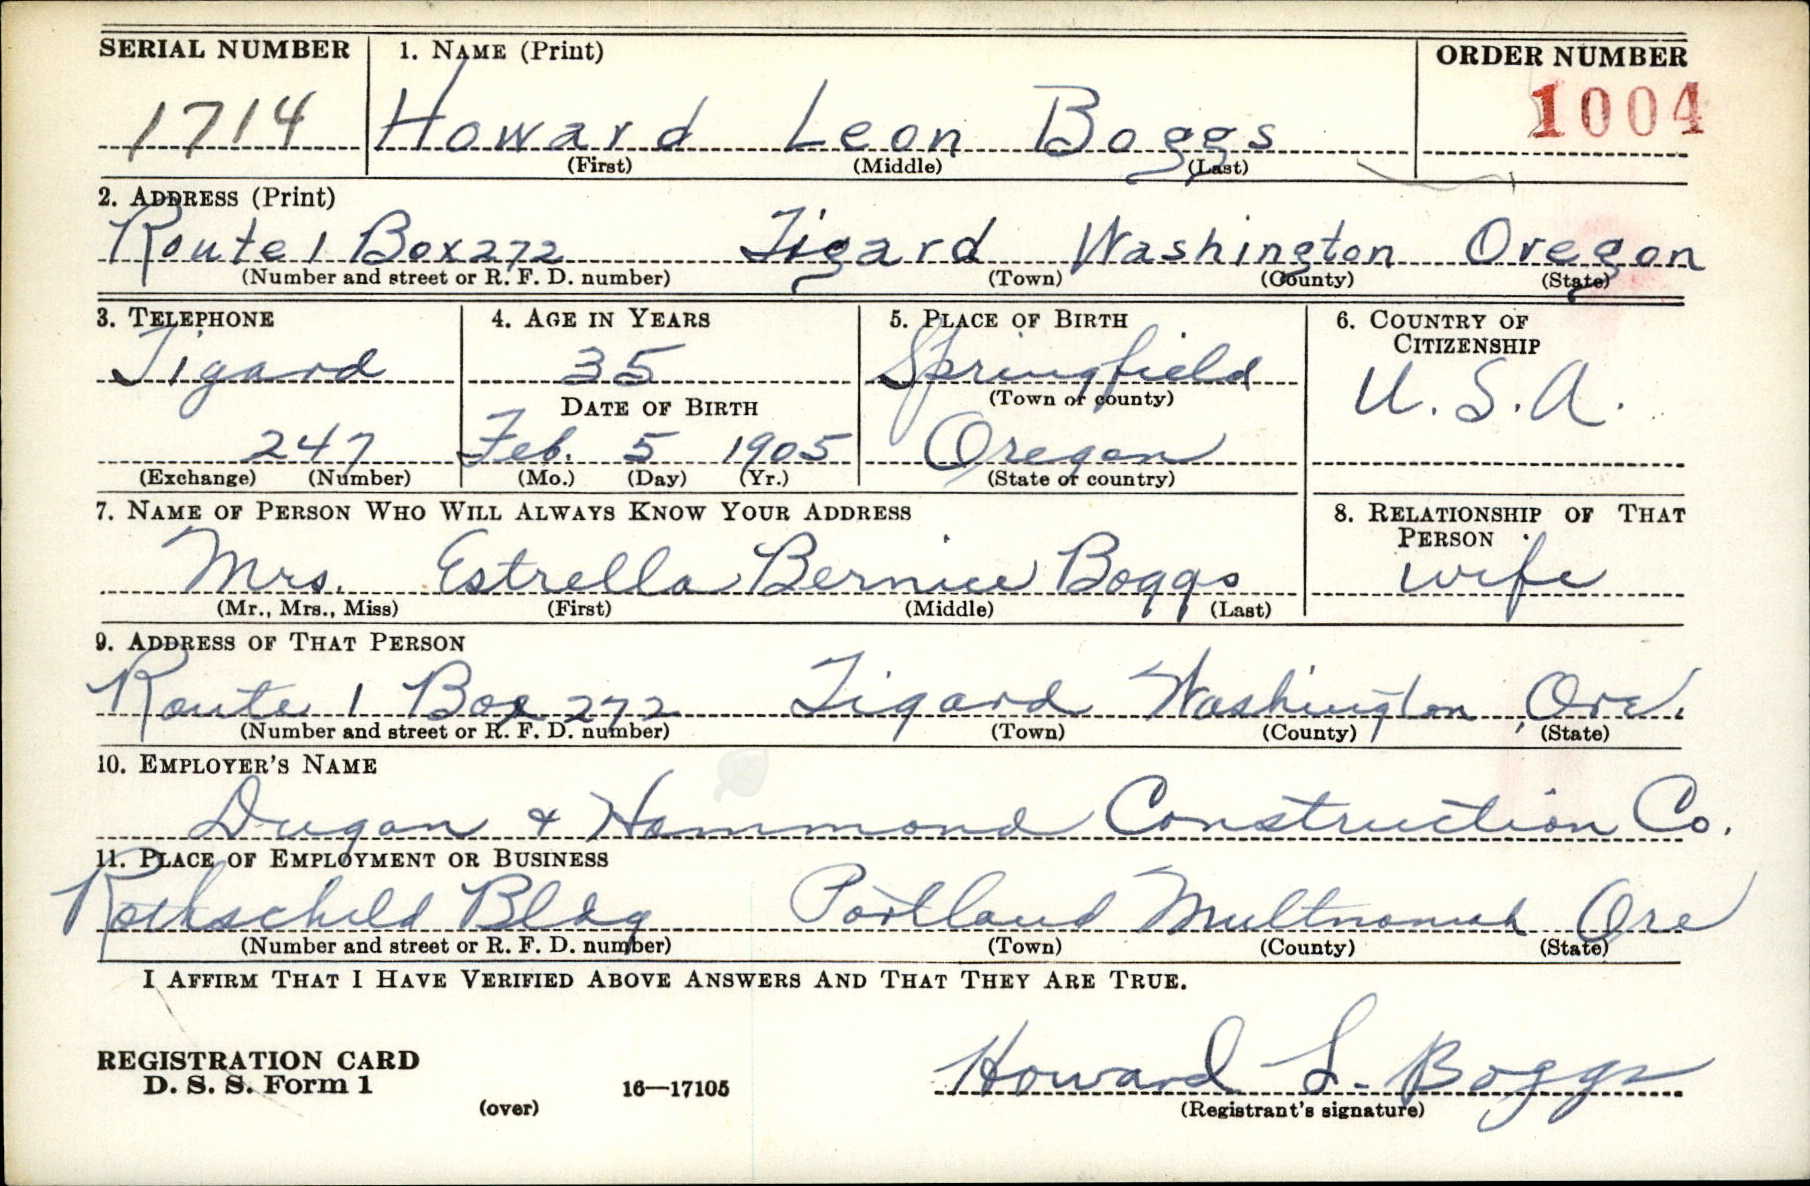 SERIAL NUMBER 1. NAME (Print) ORDER NUMBER
1714 Howard Leon Boggs 1004
(First) (Middle) (Last)
2. ADDRESS (Print)
Route 1 Box 272 Tigard Washington Oregon
(Number and street or R. F. D. number) (Town) (County) (State)
3. TELEPHONE 4. AGE IN YEARS 5. PLACE OF BIRTH 6. COUNTRY OF
CITIZENSHIP
Tigard 35 Springfield U.S.A.
(Town or county)
DATE OF BIRTH
247 Feb. 5 1905 Oregon
(Exchange) (Number) (Mo.) (Day) (Yr.) (State or country)
7. NAME OF PERSON WHO WILL ALWAYS KNOW YOUR ADDRESS 8. RELATIONSHIP OF THAT
PERSON
Mrs. Estrella Bernice Boggs wife
(Mr., Mrs., Miss) (First) (Middle) (Last)
9. ADDRESS OF THAT PERSON
Route 1 Box 272 Tigard Washington, Ore.
(Number and street or R. F. D. number) (Town) (County) (State)
10. EMPLOYER'S NAME
Dugan & Hammond Construction Co.
11. PLACE OF EMPLOYMENT OR BUSINESS
Rothschild Bldg Portland Multnomah Ore
(Number and street or R. F. D. number) (Town) (County) (State)
I AFFIRM THAT I HAVE VERIFIED ABOVE ANSWERS AND THAT THEY ARE TRUE.
REGISTRATION CARD
D. S. S. Form 1 16—17105 Howard L. Boggs
(over) (Registrant's signature)